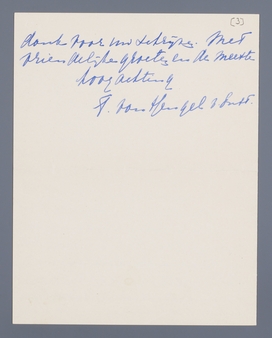 (3)
dank voor uw schrijven. Met
vriendelijke groeten en de meeste
hoogachting
F. van Hengel